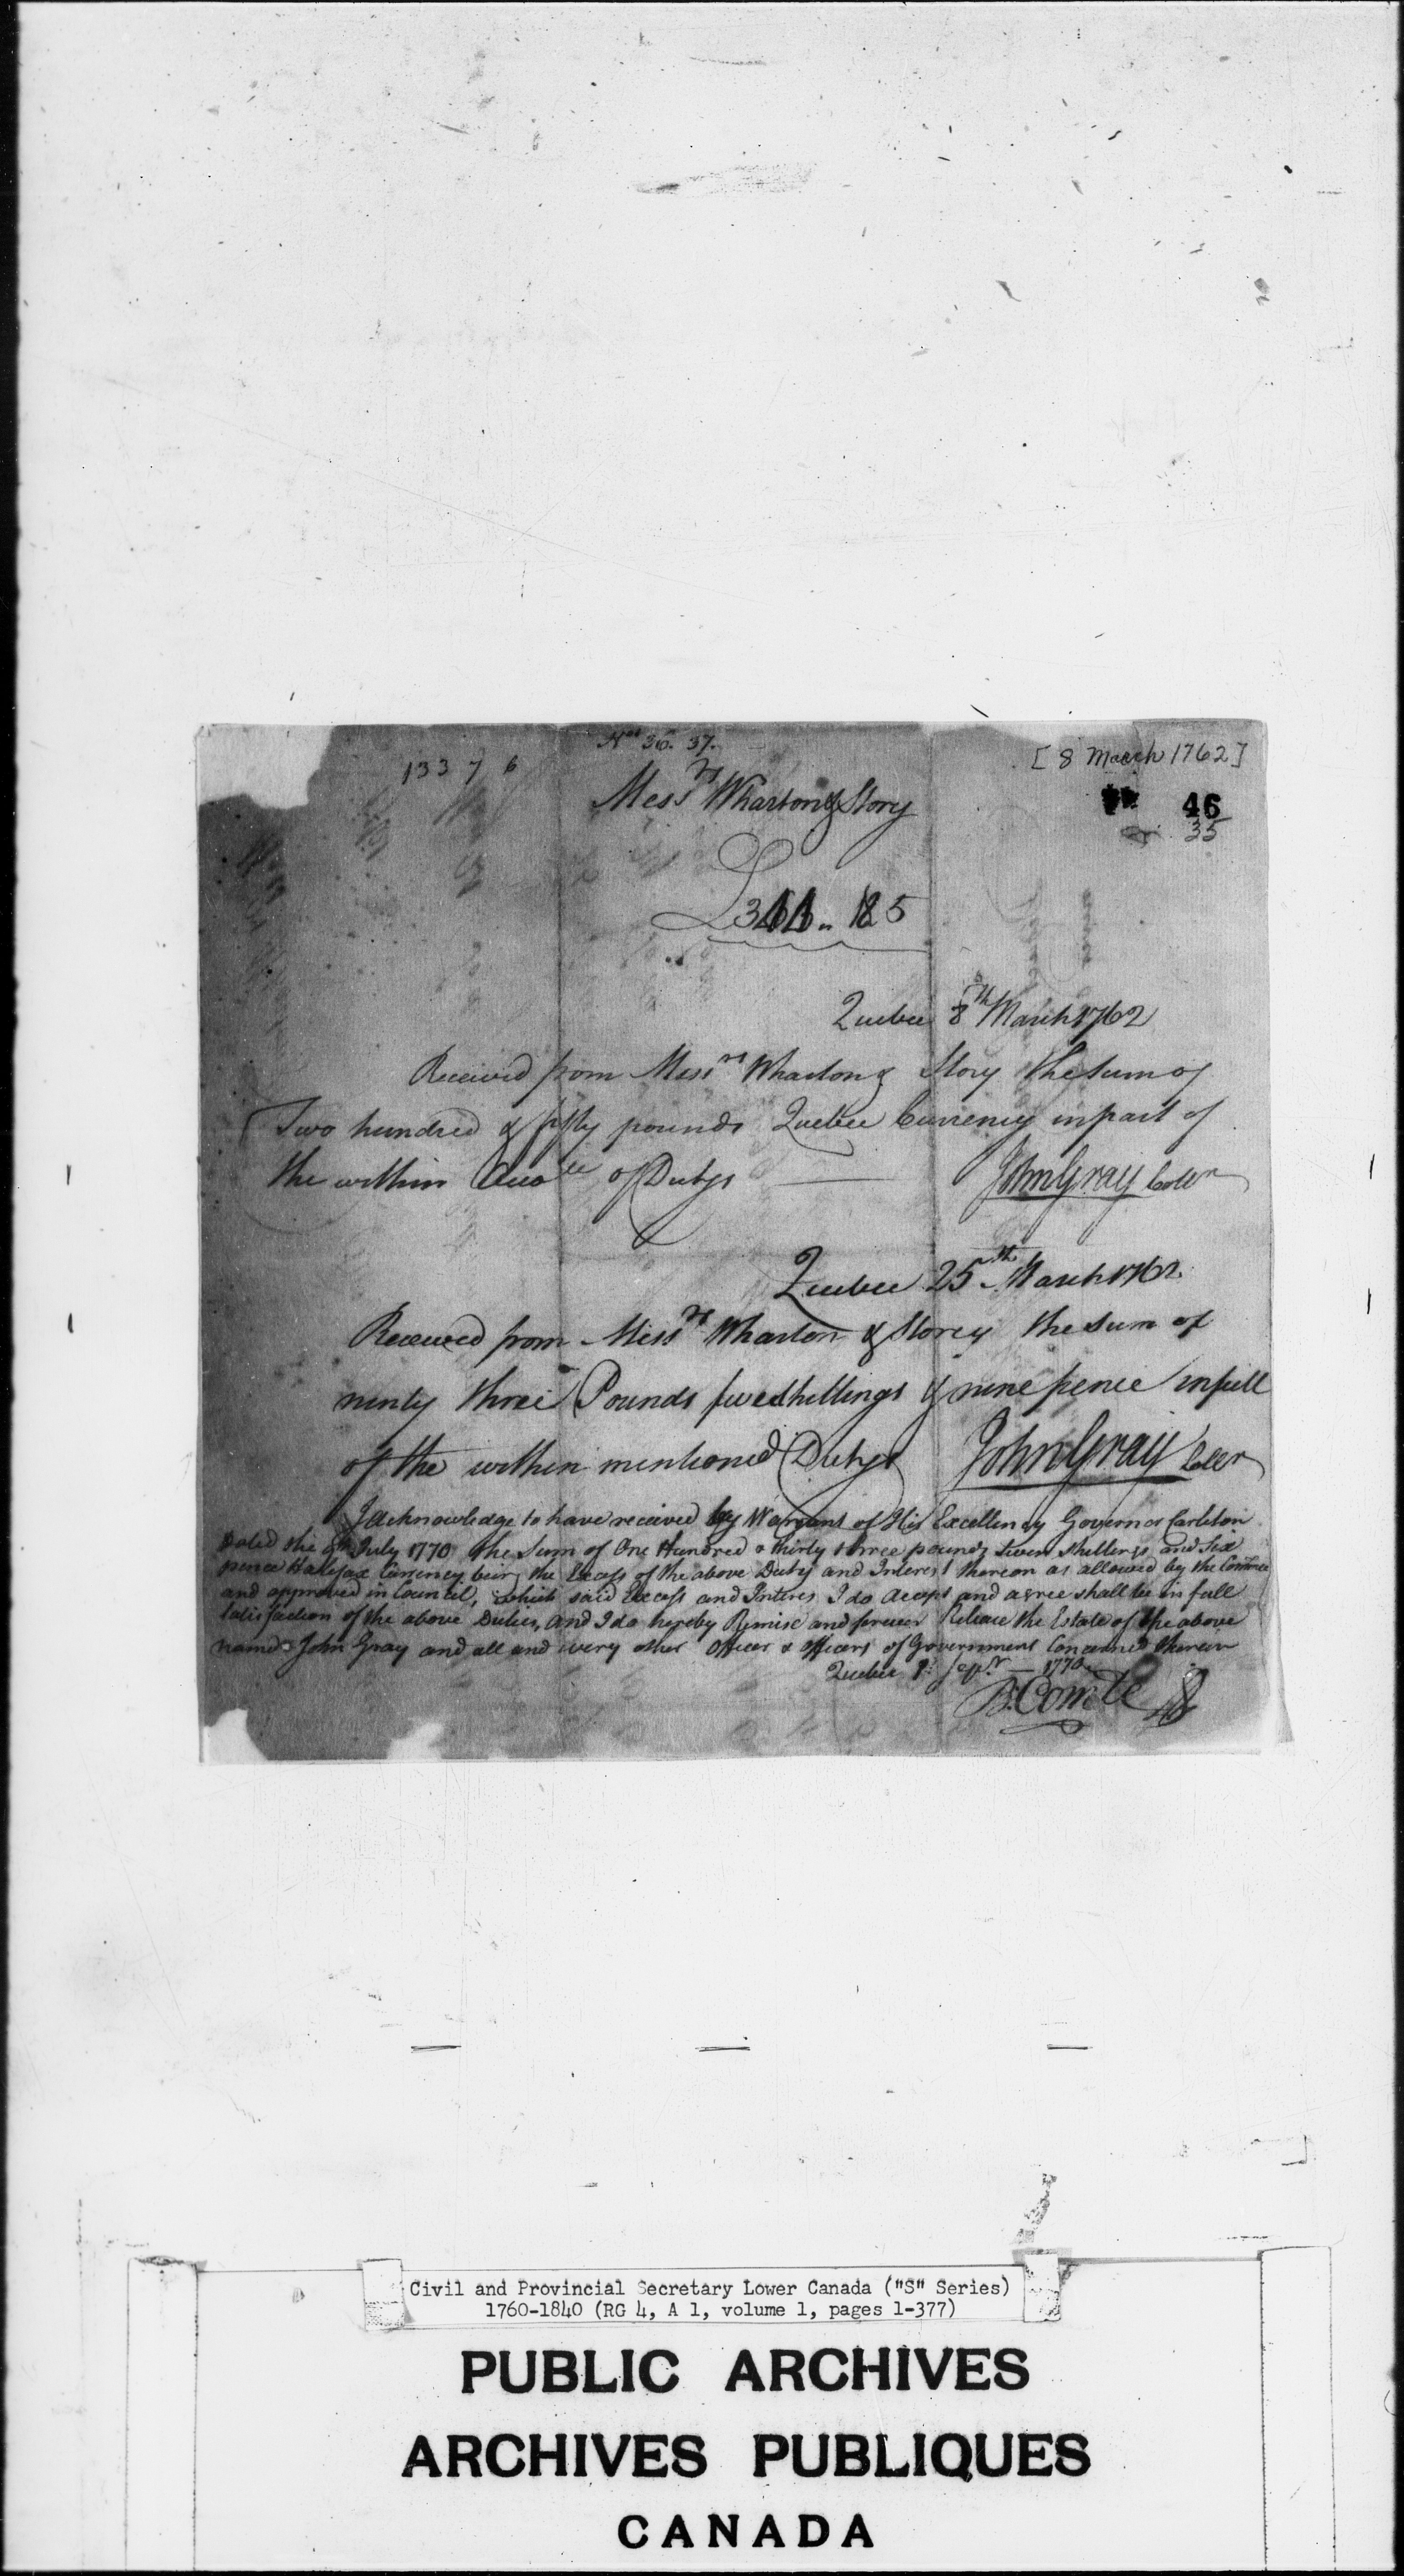 Nos 36. 37.
[8 March 1762]
133 7 6
Messrs Wharton & Story
46
35
Quebec 8th March 1762
Received from Messrs Wharton & Story the sum of
Two hundred & fifty pounds Quebec Currency in part of
the within of Dutys
John Gray Collr
Quebec 25th March 1762
Received from Messrs Wharton & Storey the sum of
ninty three Pounds five shillings & nine pence in full
of the within mentioned Dutys John Gray Collr
I acknowledge to have received by Warrant of His Excellency Governor Carleton
Dated the July 1770 the Sum of One Hundred & thirty three pounds Seven Shillings and Six
pence Halifax Currency being the Excess of the above Duty and Interest thereon as allowed by the
and approved in Council, which said Excess and Interes I do Accept and agree shall be in full
satisfaction of the above Duties, and I do hereby Remise and forever Release the Estate of the above
named John Gray and all and every other Officer & officers of Government Concerned therein
Quebec Sepr 1770
B. Comte
Civil and Provincial Secretary Lower Canada ("S" Series)
1760-1840 (RG 4, A 1, volume 1, pages 1-377)
PUBLIC ARCHIVES
ARCHIVES PUBLIQUES
CANADA